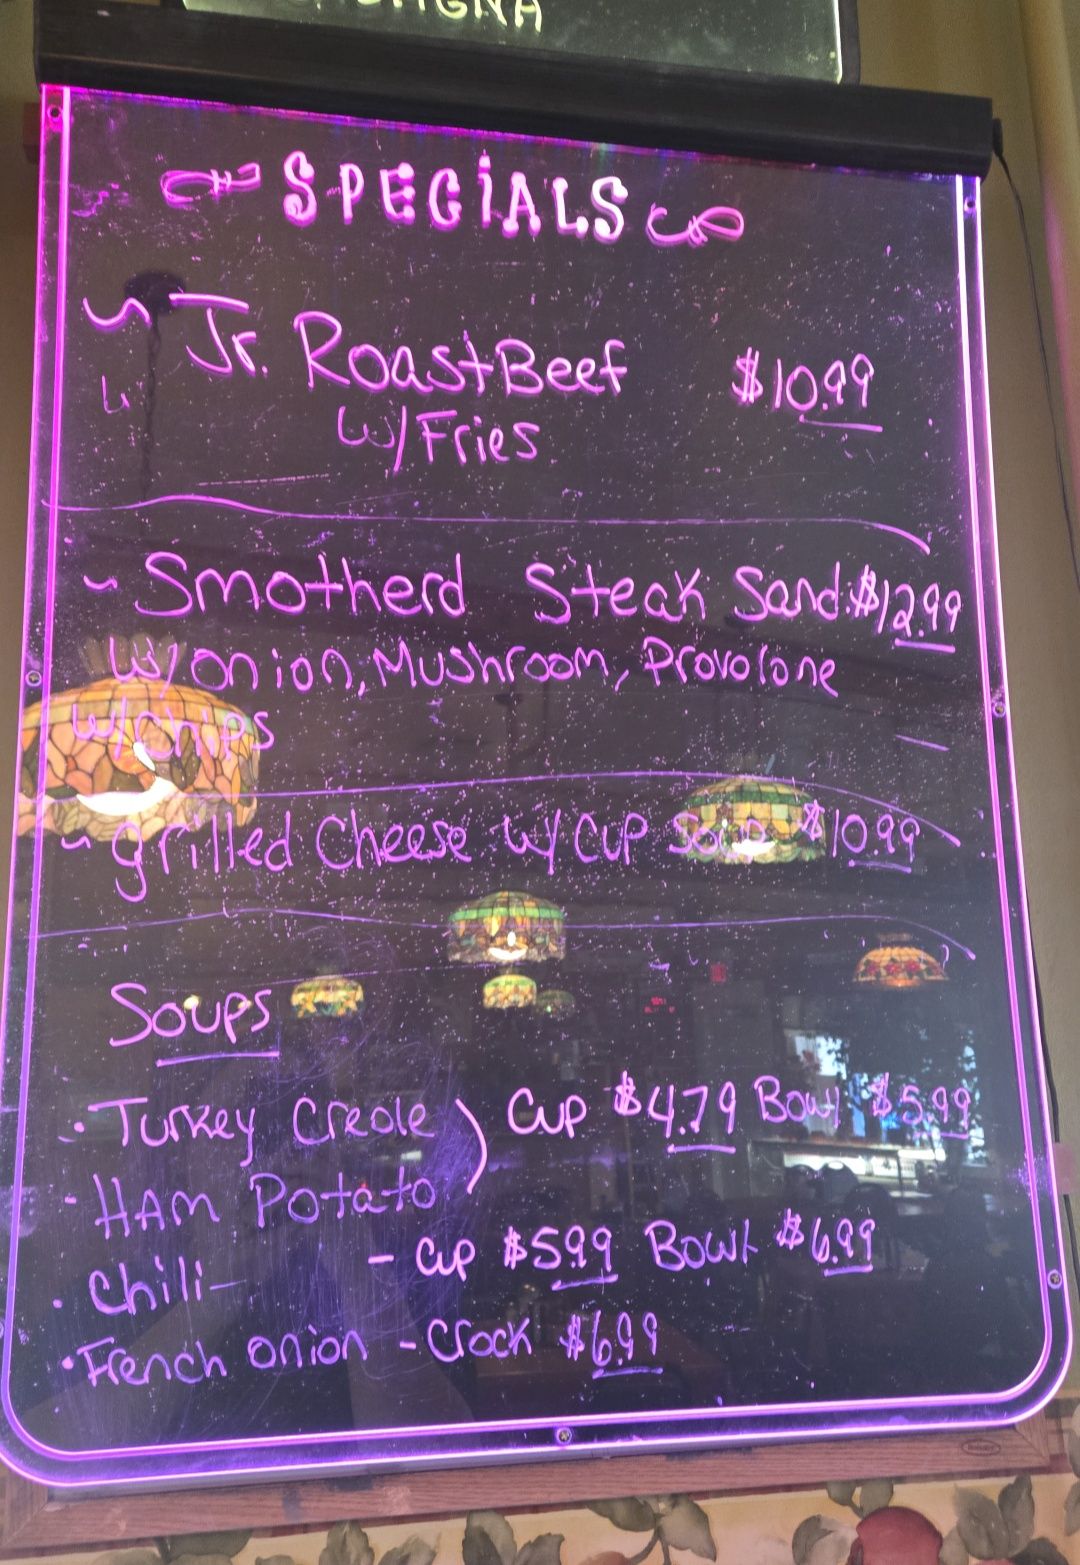 SPECiALS
Jr. Roast Beef $10.99
w/Fries
Smotherd Steak Sand. $12.99
w/onion, Mushroom, Provolone
w/chips
grilled Cheese w/ cup soup $10.99
Soups
Turkey Creole ) Cup $4.79 Bowl $5.99
- HAM Potato
• Chili - - cup $5.99 Bowl $6.99
• French onion - Crock $6.99